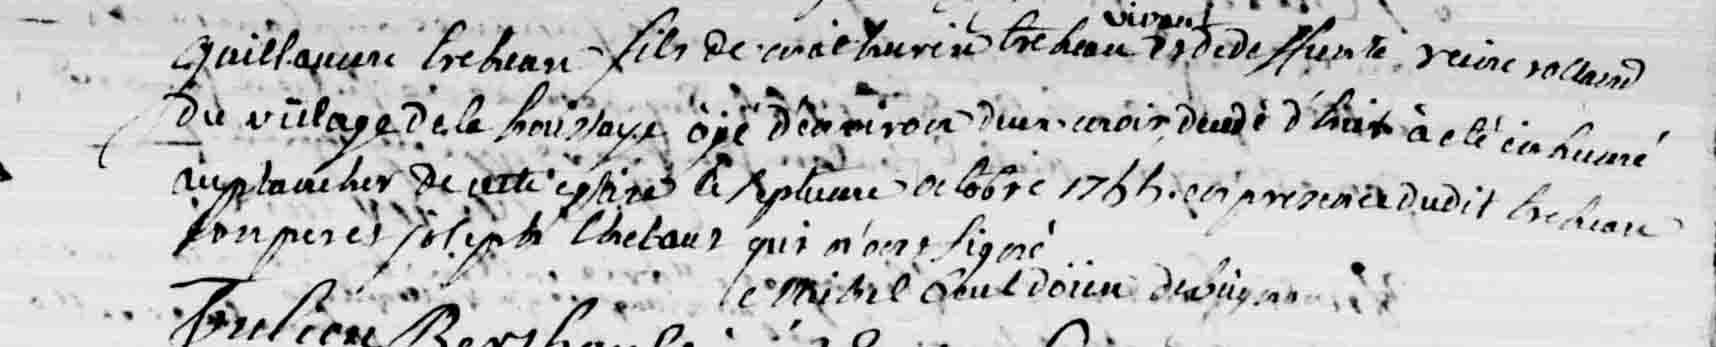 vivant
Guillaume trehean fils de mathurin trehean et de deffunte reine rolland
Du village de la houssaye âgé d'environ deux mois, decedé d'hier à eté inhumé
au plancher de cette eglise le septieme octobre 1755. en presence dudit trehean
son pere et joseph qui n'ont signé
Michel doïen de
Julien